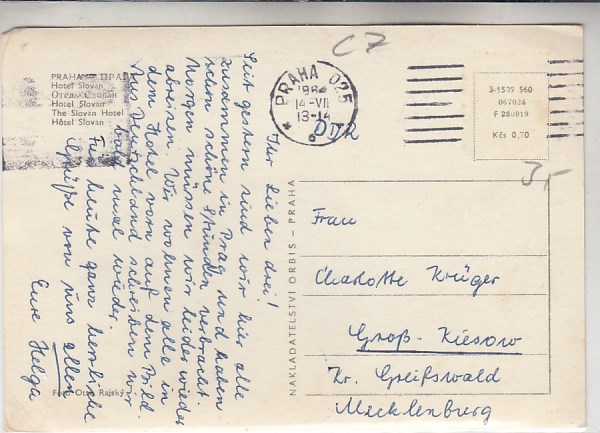 PRAHA
Hotel Slovan
Отель Слован
Hotel Slovan
The Slovan Hotel
Hôtel Slovan
C7
PRAHA 025
1964
14-VII
13-14
6
3-1539 560
067024
F 280919
Kčs 0,70
DDR
Ihr lieben drei!
Seit gestern sind wir hier alle
zusammen in Prag und haben
schon schöne Stunden verbracht.
Morgen müssen wir leider wieder
abreisen. Wir wohnen alle in
dem Hotel vorn auf dem Bild.
Aus Deutschland schreiben wir
bald mal wieder.
Für heute ganz herzliche
Grüße von uns allen
Eure Helga
NAKLADATELSTVÍ ORBIS – PRAHA
Frau
Charlotte Krüger
Groß-Kiesow
Kr. Greifswald
Mecklenburg
Foto Otto Rajský